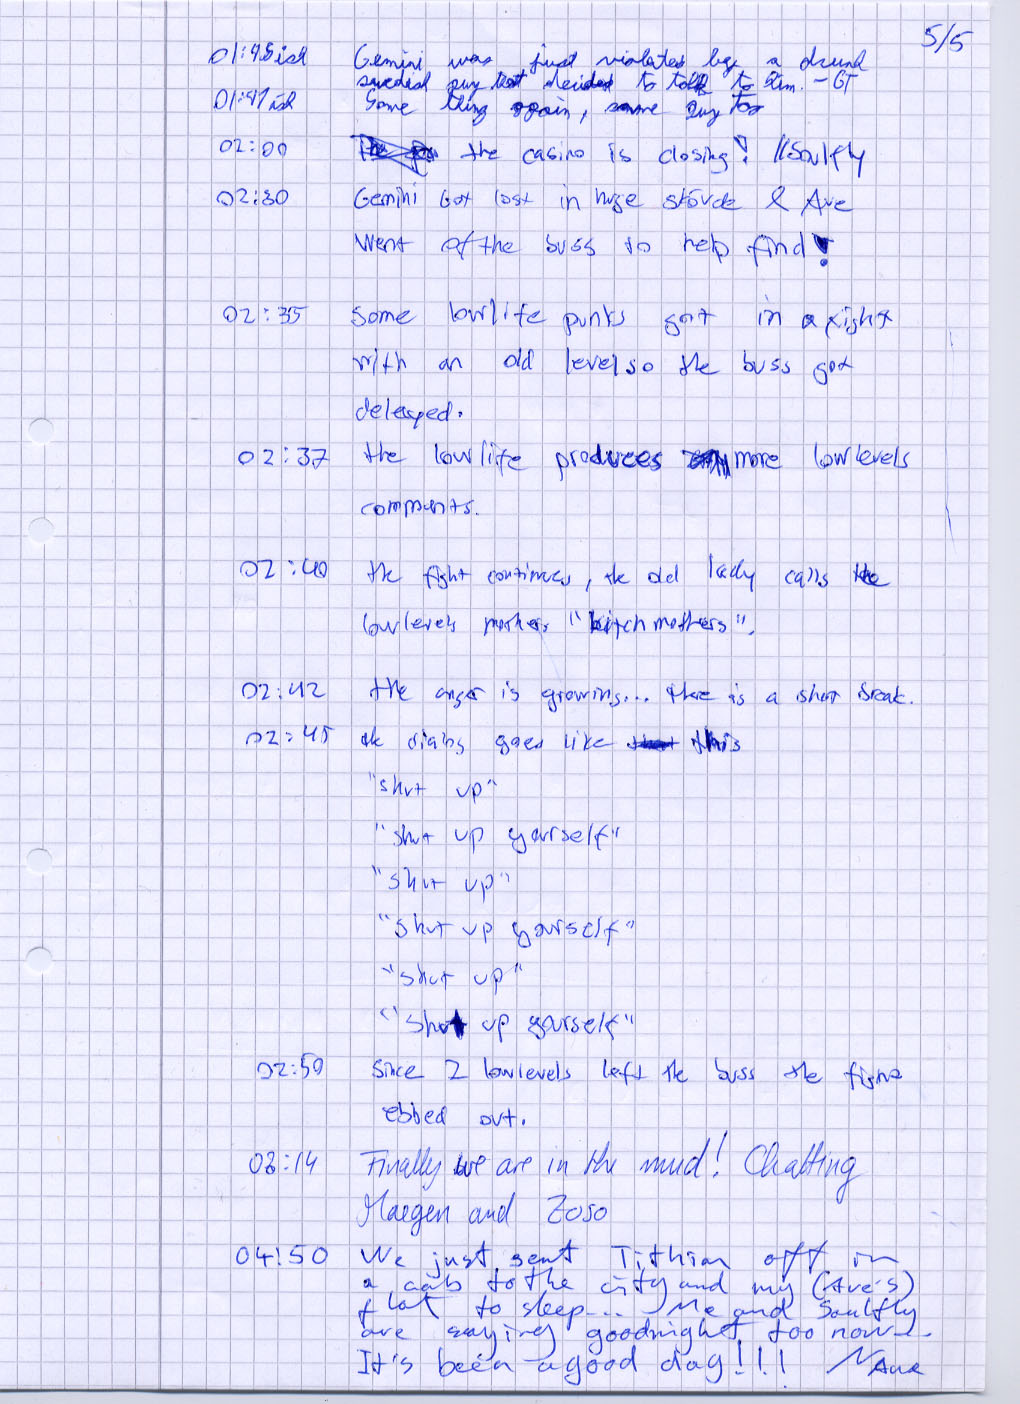 5/5
01:45ish Gemini was just violated by a drunk
swedish guy that decided to talk to him. - GT
01:47ish Same thing again, same guy too
02:00 the casino is closing! //Soulfly
02:30 Gemini Got lost in huge & Ave
Went of the buss to help find!
02:35 Some lowlife punks got in a fight
with an old level so the buss got
delayed.
02:37 the lowlife produces more lowlevels
comments.
02:40 the fight continues, the old lady calls the
lowlevels mothers "bitch mothers".
02:42 the anger is growing... there is a short break.
02:45 the dialog goes like this
"shut up"
"shut up yourself"
"shut up"
"shut up yourself"
"shut up"
"shut up yourself"
02:50 Since 2 lowlevels left the buss the fight
ebbed out.
03:14 Finally we are in the mud! Chatting
Maegen and Zoso
04:50 We just sent Tithian off in
a cab to the city and my (Ave's)
flat to sleep... Me and Soulfly
are saying goodnight too now
It's been a good day!!! ~Ave